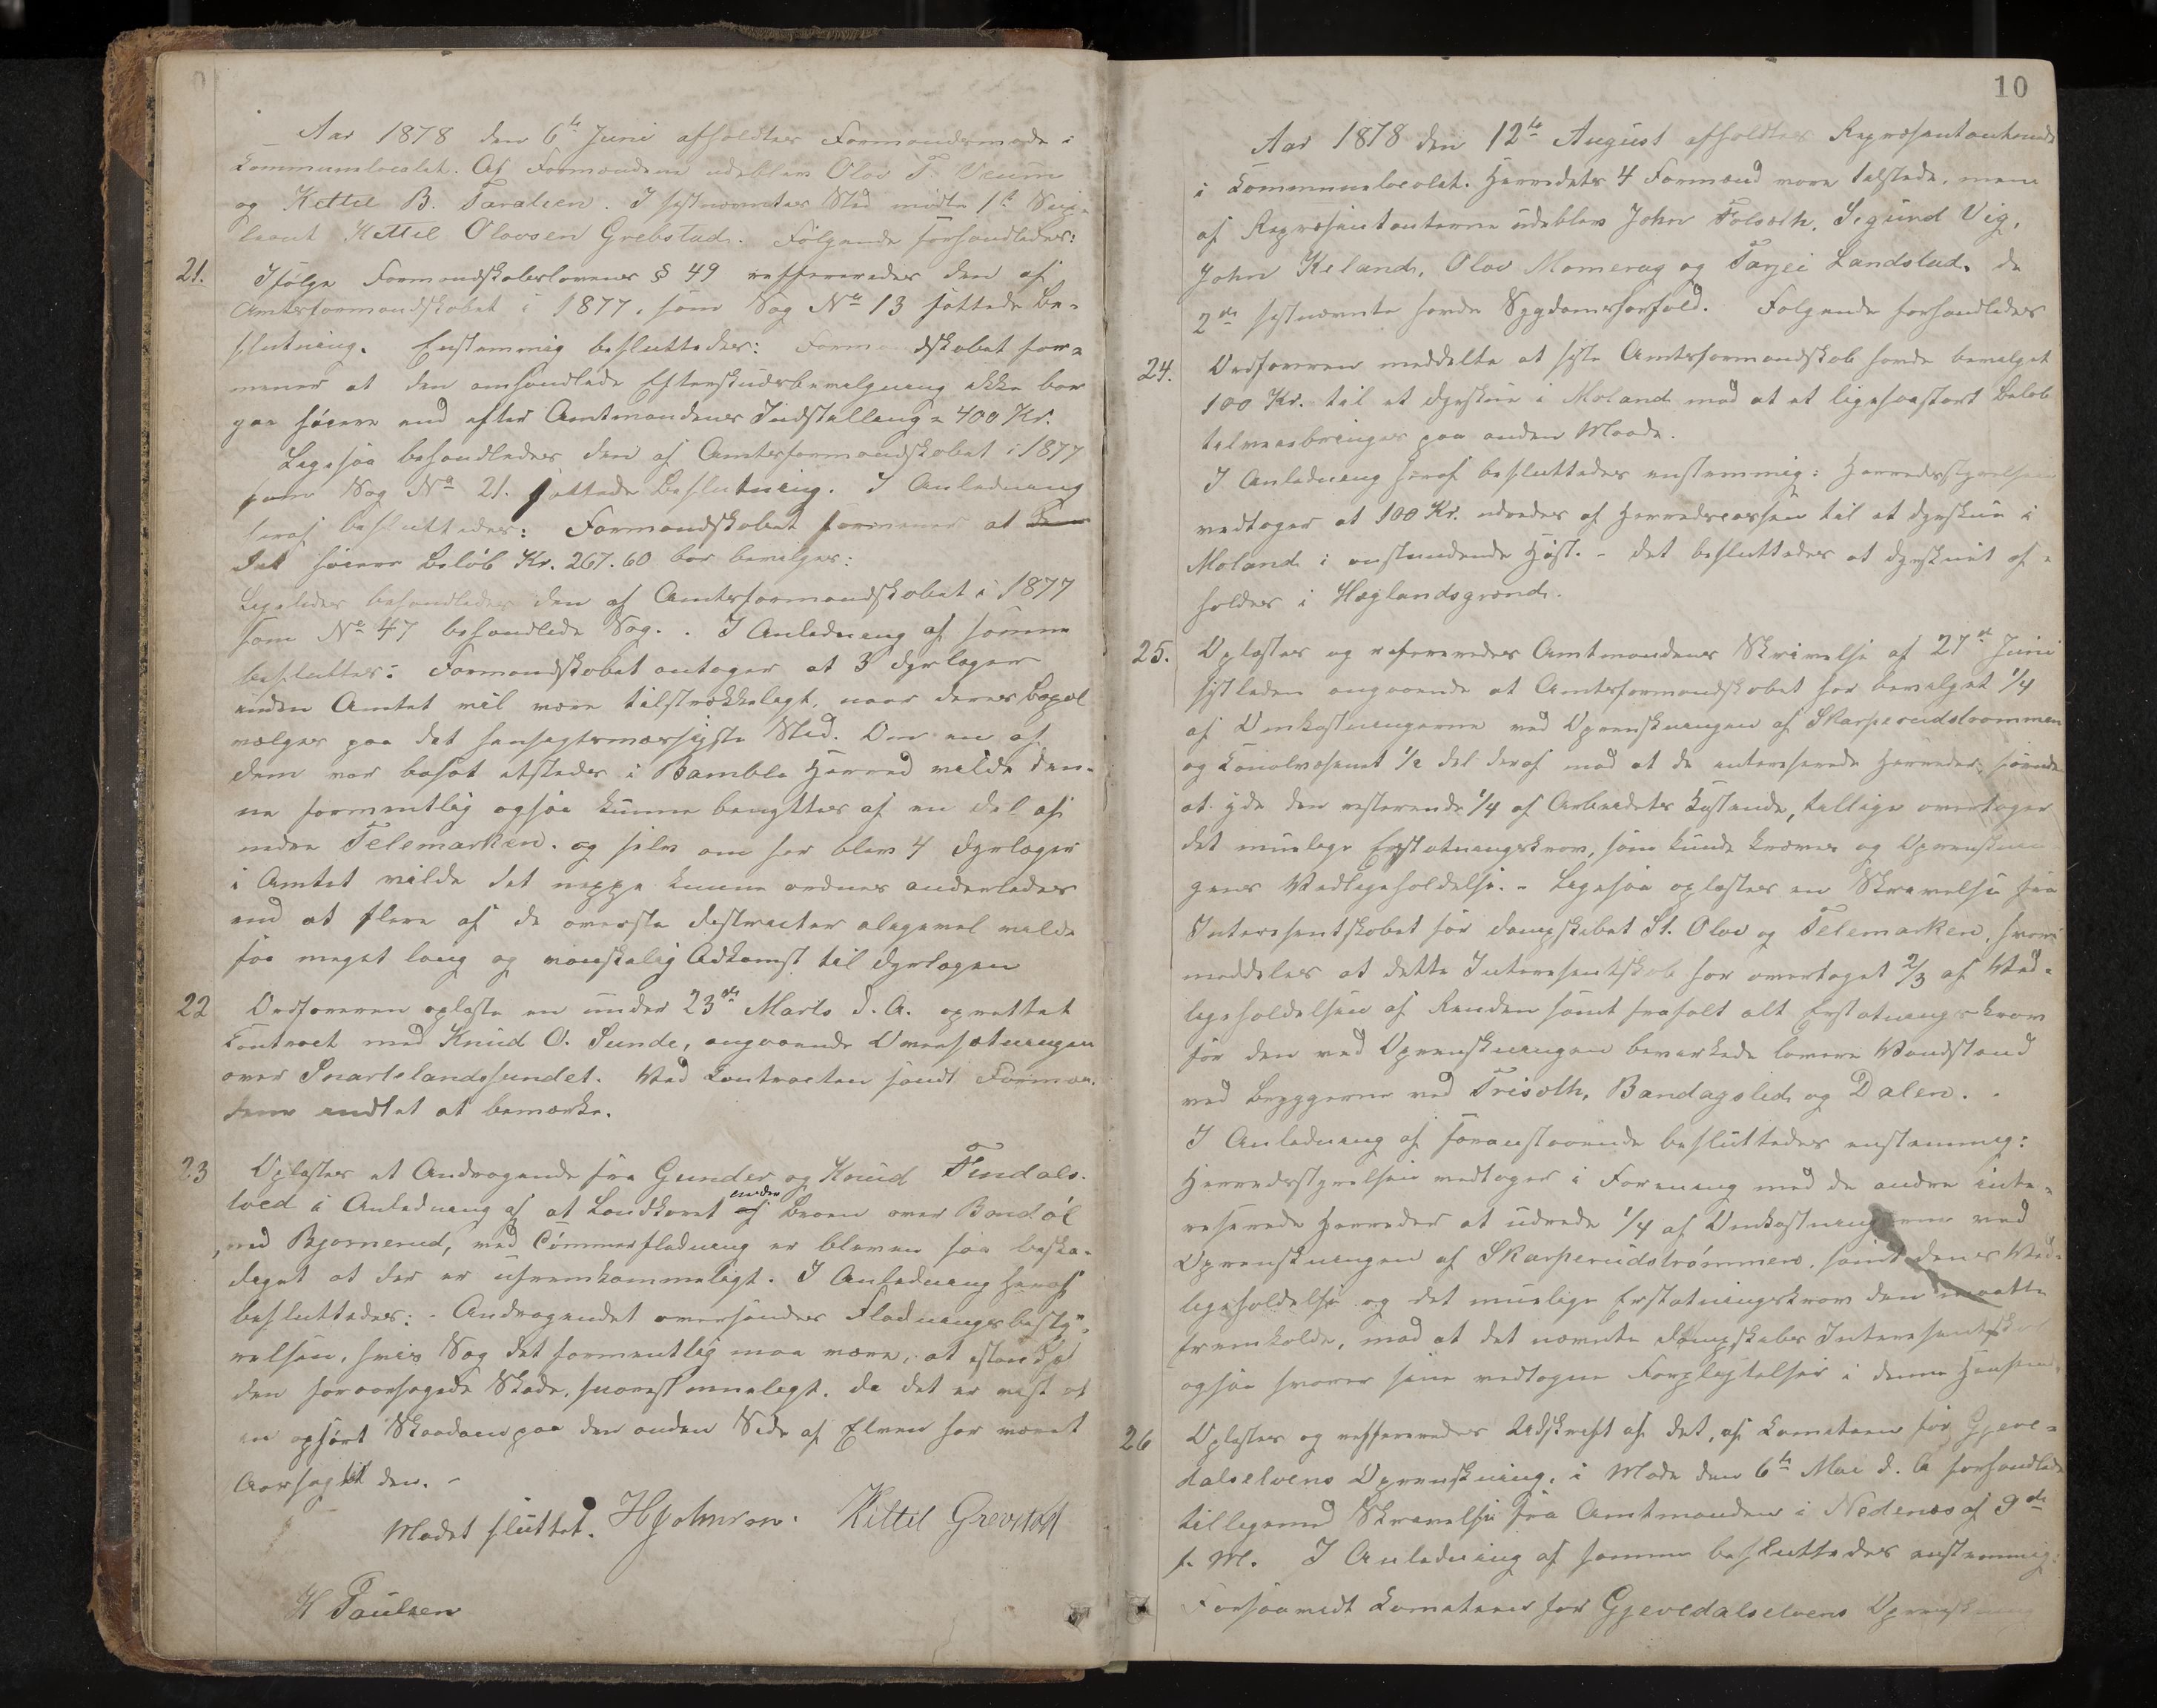 Aar 1878 den 6te Juni afholdtes Formandsmøde i
Kommunelocalet. Af Formændene udeblev Olav T. Veum
og Kettil B. Taraldsen. I sidstnævntes Sted mødte 1ste Sup-
leant Kettil Olavsen Grevstad. Følgende forhandledes:
21. Ifølge Formandskabslovens § 49 reffereredes den af
Amtsformandskabet i 1877, som Sag No 13 fattede Be-
slutning. Enstemmig besluttedes: Formandskabet for-
mener at den omhandlede Efterskudsbevilgning ikke bør
gaa høiere end efter Amtmandens Indstilling = 400 Kr.
Ligesaa behandledes den af Amtsformandskabet i 1877
som Sag No 21. fattede Beslutning. I Anledning
heraf besluttedes: Formandskabet formener at
det høiere Beløb Kr. 267.60 bør bevilges:
Ligeledes behandledes den af Amtsformandskabet i 1877
som No 47 behandlede Sag. . I Anledning af samme
besluttes: Formandskabet antager at 3 Dyrlæger
inden Amtet vil være tilstrækkeligt, naar deres Bopæl
vælges paa det hensigtsmæssigste Sted. Om en af
dem var bosat etsteds i Bamble Herred vilde den-
ne formentlig ogsaa kunne benyttes af en del af
nedre Telemarken. og selv om her blev 4 Dyrlæger
i Amtet vilde det neppe kunne ordnes anderledes
end at flere af de øverste Districter aligevel vilde
faa meget lang og vanskelig Adkomst til Dyrlægen
22 Ordføreren oplæste en under 23de Marts d. A. oprettet
Contract med Knud O. Sunde, angaaende Oversætningen
over Snartelandssundet. Ved Contracten fandt Formæn-
dene intet at bemærke.
23 Oplæstes et Andragende fra Gunder og Knud Findals-
tved i Anledning af at Landkaret af under Broen over Bandøl
ved Bjørnerud, ved Tømmerflødning er bleven saa beska-
diget at der er ufremkommeligt. I Anledning heraf
besluttedes: - Andragendet oversendes Flødningsbesty-
relsen, hvis Sag det formentlig maa være, at istandsæt
den foraarsagede Skade, snarest mueligt. da det er vist at
en opført Skaadam paa den anden Side af Elven har været
Aarsag til den. -
Mødet sluttet. HJohnsen. Kittil Grevstad
H Paulsen
10
Aar 1878 den 12te August afholdtes Repræsentantmøde
i Kommunelocalet. Herredets 4 Formænd vare tilstede, mens
af Repræsentanterne udeblev John Folsæth, Sigurd Vig,
John Kiland, Olav Momrag og Tarjei Landstad. de
2de sidstnævnte havde Sygdomsforfald. Følgende forhandledes
24. Ordføreren meddelte at sidste Amtsformandskab havde bevilget
100 Kr. til et Dyrskue i Moland mod at et ligesaastort Beløb
tilveiebringes paa anden Maade.
I Anledning heraf besluttedes enstemmig: Herredsstyrelsen
vedtager at 100 Kr. udredes af Herredscassen til et Dyrskue i
Moland i anstundende Høst. - Det besluttedes at Dyrskuet af-
holdes i Høglandsgrænd.
25. Oplæstes og refereredes Amtmandens Skrivelse af 27de Juni
sidstleden angaaende at Amtsformandskabet har bevilget 1/4
af Omkostningerne ved Oprenskningen af Skarperudstrømmen
og Canalvæsenet 1/2 del deraf mod at de interesserede Herreder, foruden
at yde den resterende 1/4 af Arbeidets Kostende, tillige overtager
det muelige Erstatningskrav, som kunde kræves og Oprensknin-
gens Vedligeholdelse. - Ligesaa oplæstes en Skrivelse fra
Interesentskabet for Dampskibet St. Olav og Telemarken, hvori
meddeles at dette Interesentskab har overtaget 2/3 af Ved-
ligeholdelsen af Renden samt frafalt alt Erstatningskrav
for den ved Oprenskningen bevirkede lavere Vandstand
ved Bryggerne ved Trisæth, Bandagslid og Dalen. .
I Anledning af foranstaaende besluttedes enstemmig:
Herredsstyrelsen vedtager i Forening med de andre inte-
reserede Herreder at udrede 1/4 af Omkostningerne ved
Oprenskningen af Skarperudstrømmen. samt denes Ved-
ligeholdelse og det muelige Erstatningskrav den maatte
fremkalde, mod at det nævnte Dampskibs Interesentskab
ogsaa svarer sine vedtagne Forpligtelser i denne Henseende.
26 Oplæstes og reffereredes Udskrift af det, af Komiteen for Gjeve-
dalselvens Oprenskning, i Møde den 6te Mai d. A forhandlede
tilligemed Skrivelse fra Amtmanden i Nedenæs af 9de
s. M. I Anledning af samme besluttedes enstemmig:
Forsaavidt Komiteen for Gjevedalselvens Oprensk